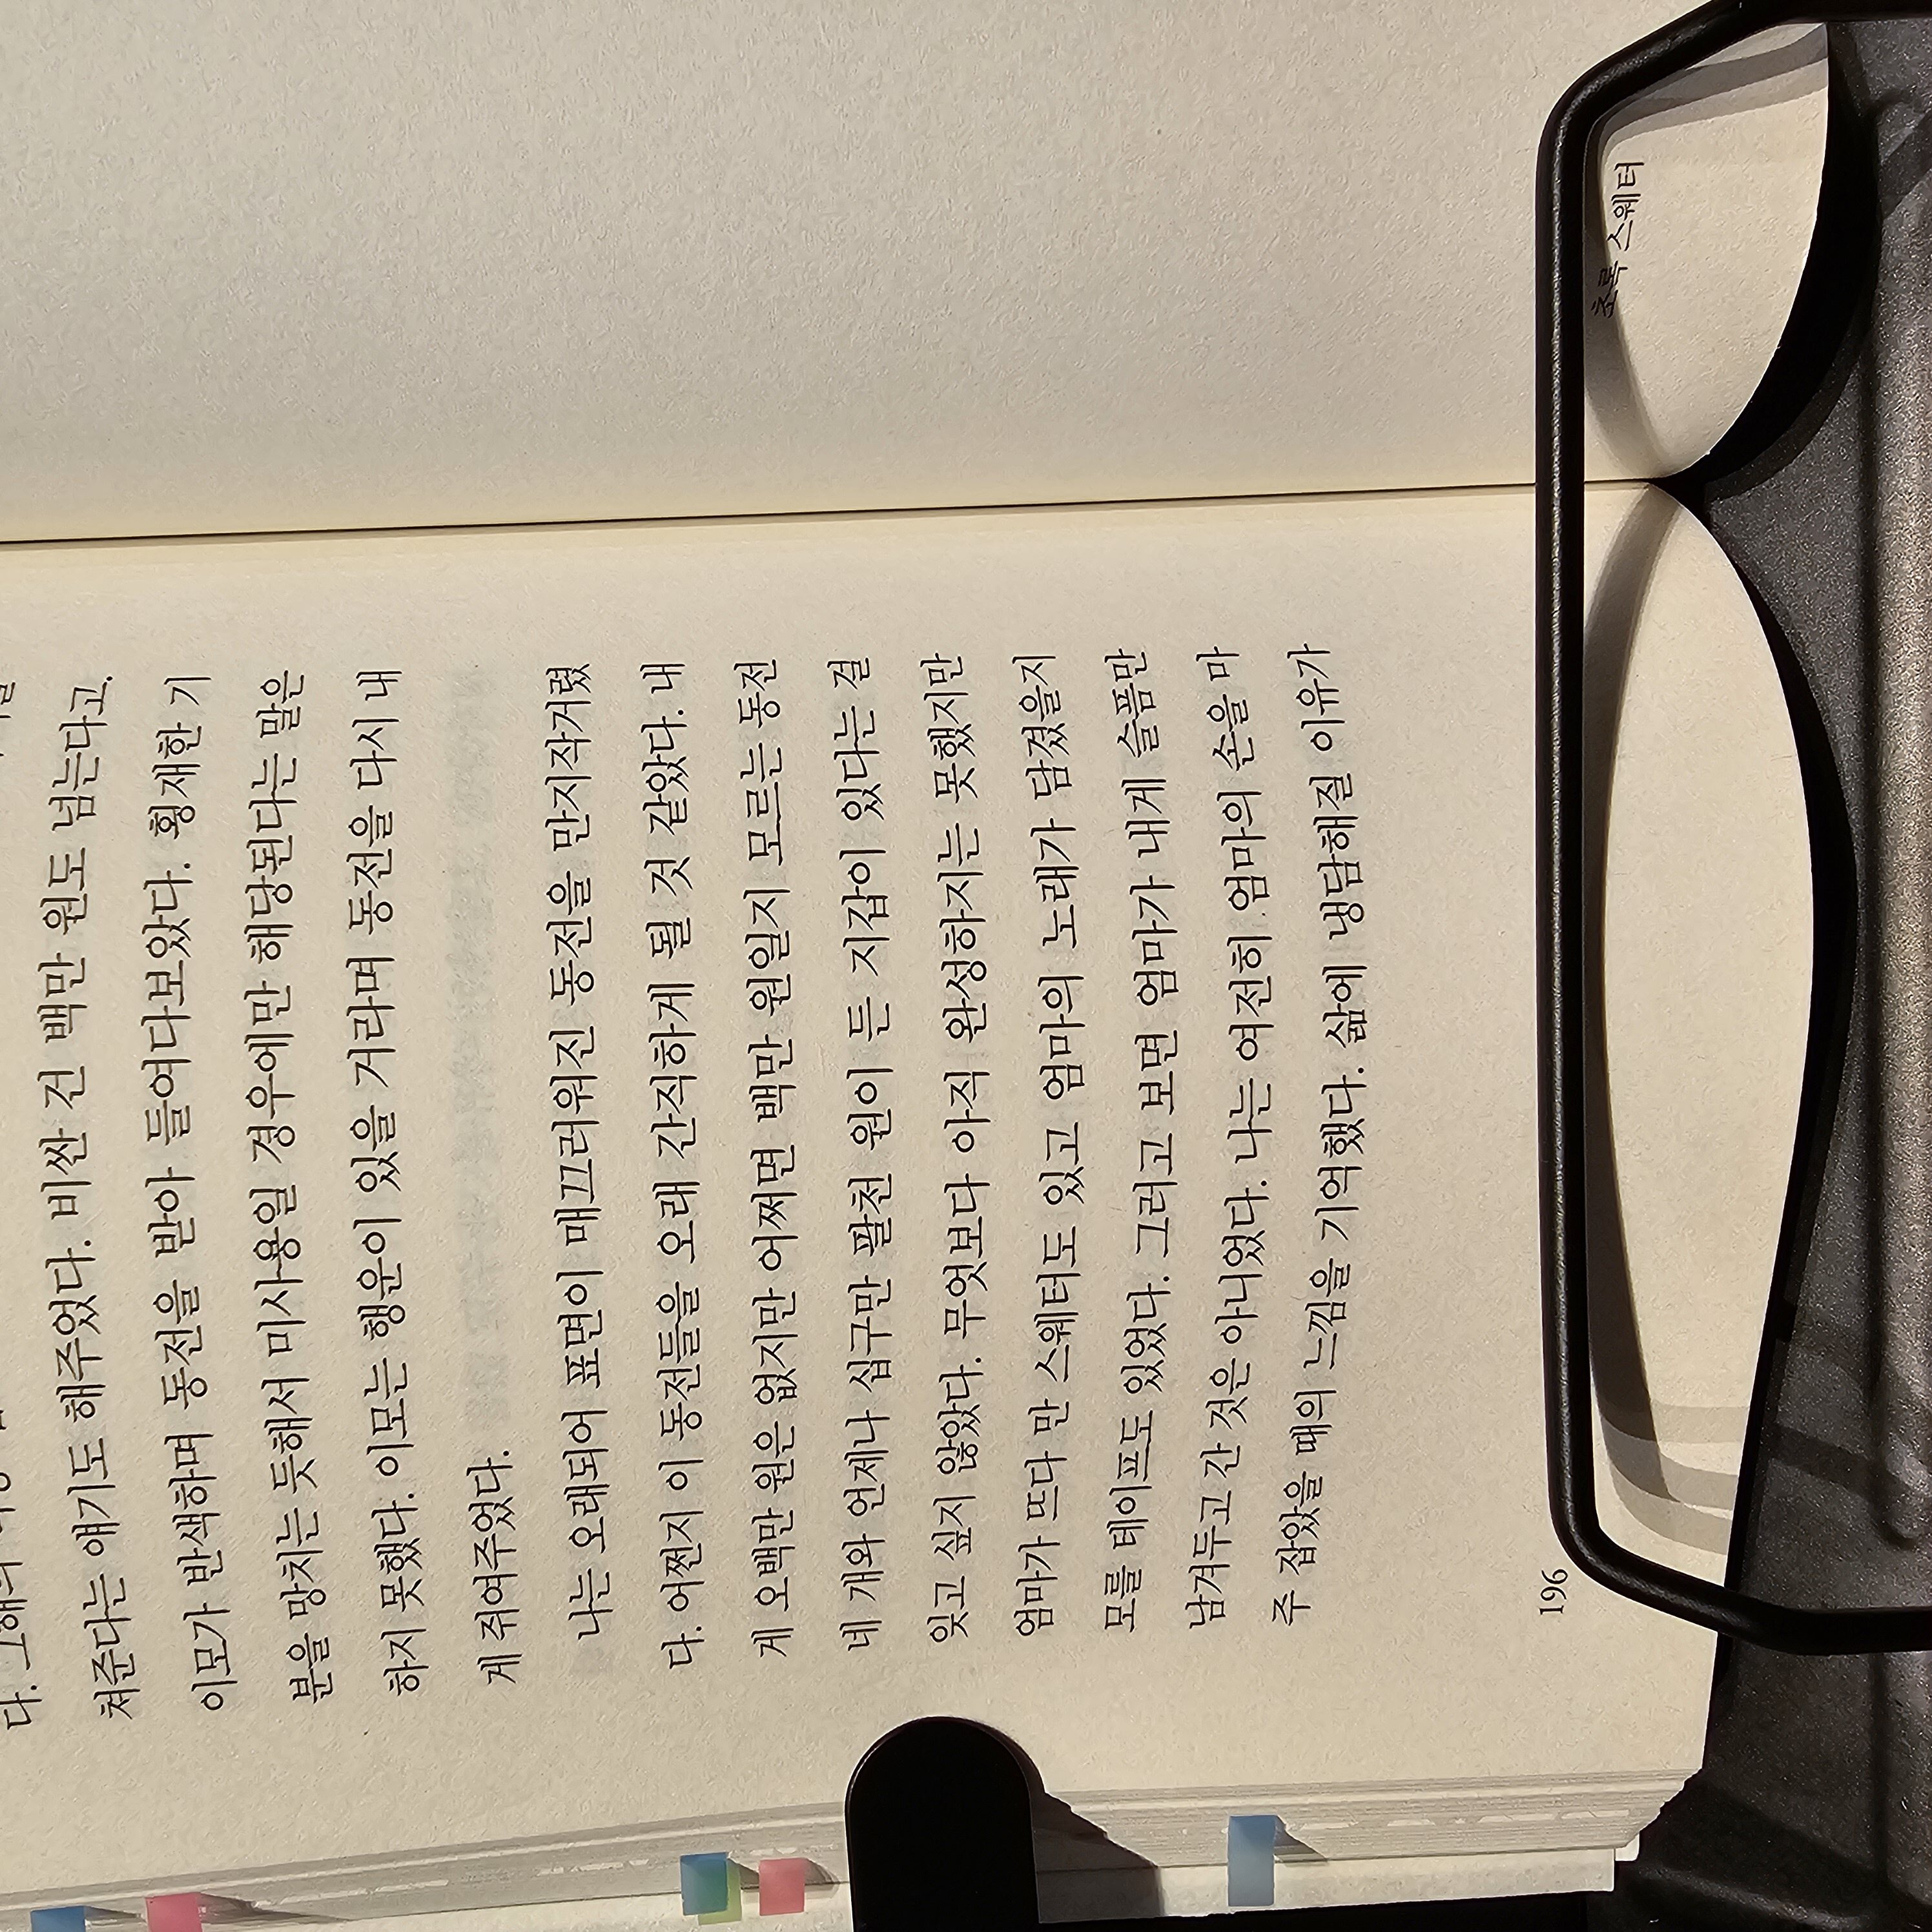 다. 그해의
쳐준다는 얘기도 해주었다. 비싼 건 백만 원도 넘는다고.
이모가 반색하며 동전을 받아 들여다보았다. 횡재한 기
분을 망치는 듯해서 미사용일 경우에만 해당된다는 말은
하지 못했다. 이모는 행운이 있을 거라며 동전을 다시 내
게 쥐여주었다.
나는 오래되어 표면이 매끄러워진 동전을 만지작거렸
다. 어쩐지 이 동전들을 오래 간직하게 될 것 같았다. 내
게 오백만 원은 없지만 어쩌면 백만 원일지 모르는 동전
네 개와 언제나 십구만 팔천 원이 든 지갑이 있다는 걸
잊고 싶지 않았다. 무엇보다 아직 완성하지는 못했지만
엄마가 뜨다 만 스웨터도 있고 엄마의 노래가 담겼을지
모를 테이프도 있었다. 그러고 보면 엄마가 내게 슬픔만
남겨두고 간 것은 아니었다. 나는 여전히 엄마의 손을 마
주 잡았을 때의 느낌을 기억했다. 삶에 냉담해질 이유가
196
초록 스웨터